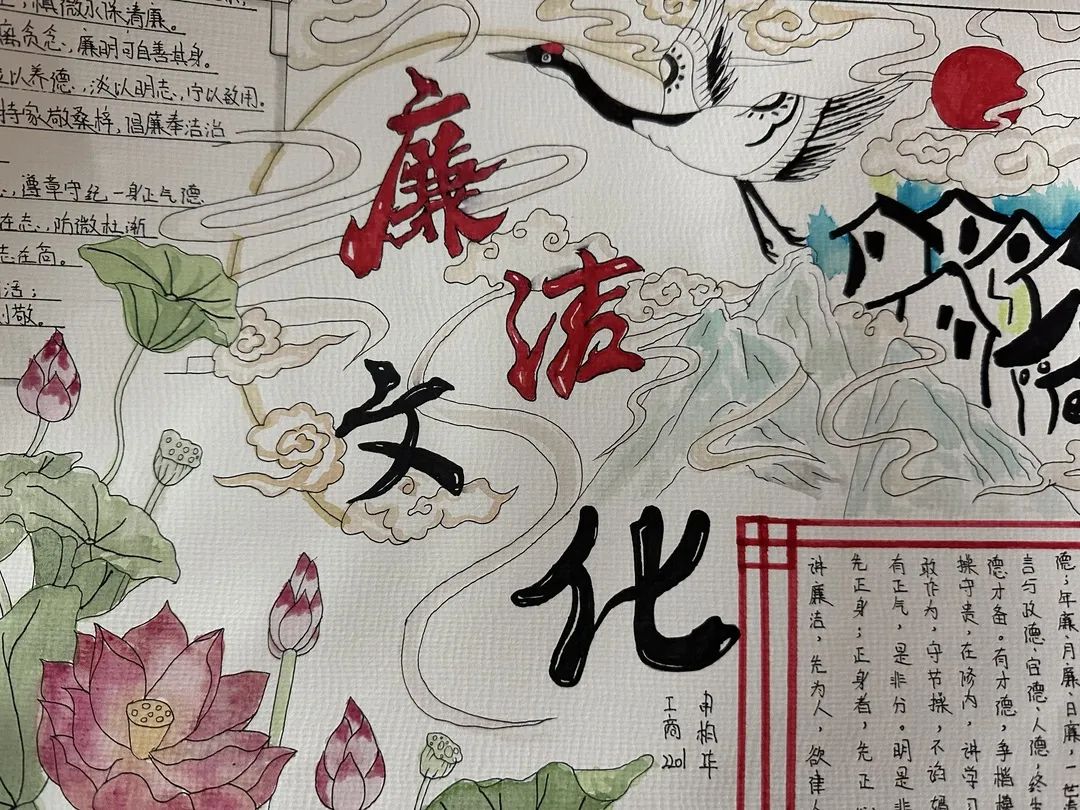 慎微永保清廉。
离贪念，廉明可自善其身。
以养德，淡以明志，宁以致用。
持家敬桑梓，倡廉奉洁治
遵章守纪一身正气德
在志，防微杜渐
志在
活；
则敬。
廉
洁
文
化
德；年廉、月廉、日廉，一世
言与政德、官德、人德，终生
德才备。有才德，争楷模
操守贵，在修内，讲学习
敢作为，守节操，不谄媚
有正气，是非分。明是非
先正身；正身者，先正
讲廉洁，先为人，欲律人
工商
2201